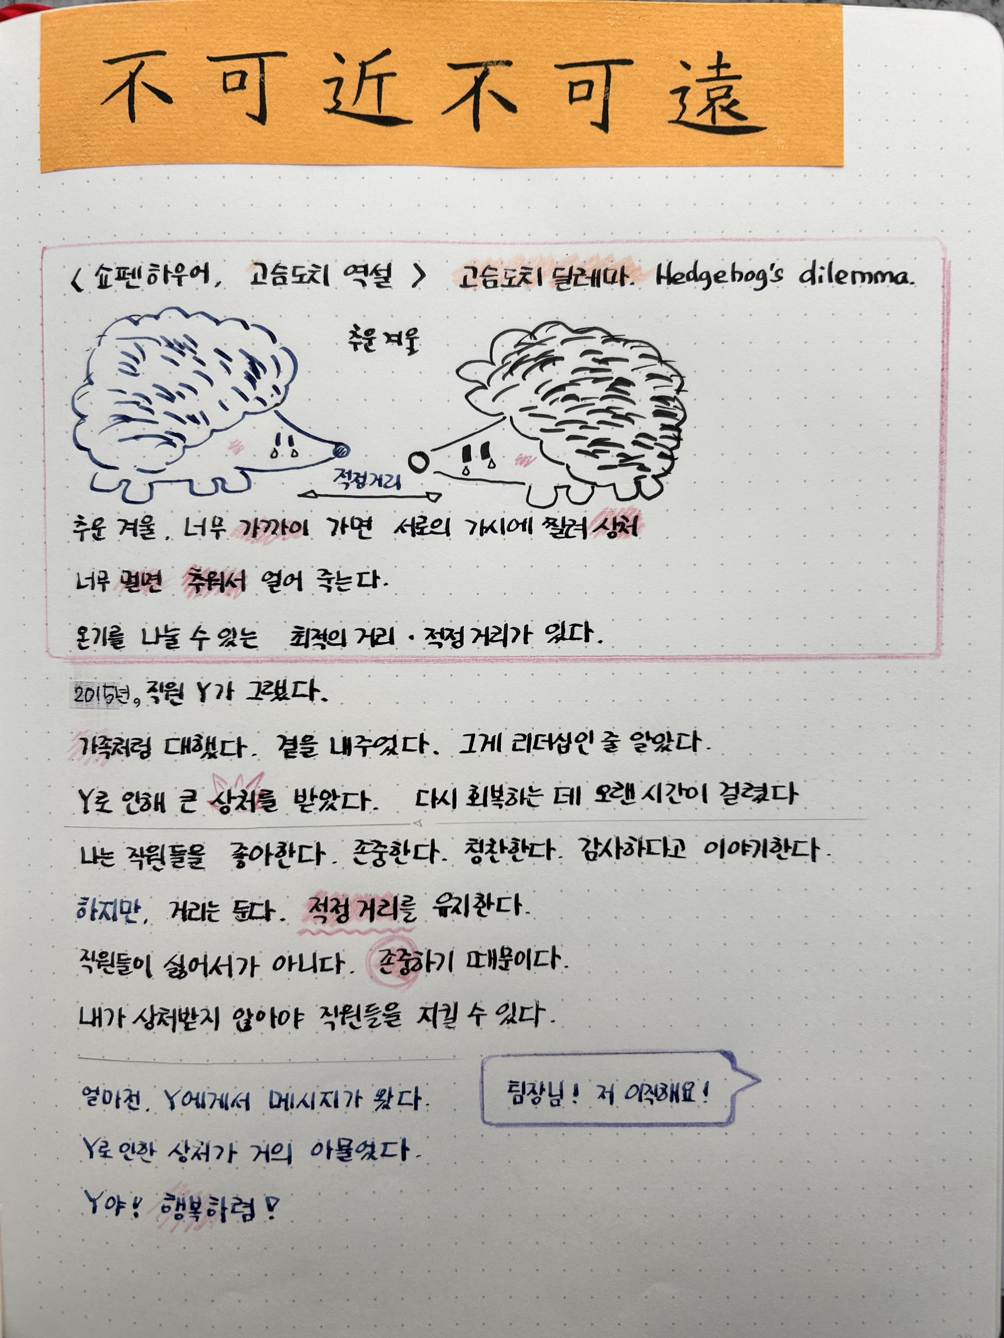 不可近不可遠
<쇼펜하우어, 고슴도치 역설> 고슴도치 딜레마. Hedgehog's dilemma.
추운 겨울
적정거리
추운 겨울, 너무 가까이 가면 서로의 가시에 찔려 상처
너무 멀면 추워서 얼어 죽는다.
온기를 나눌 수 있는 최적의 거리·적정 거리가 있다.
2015년, 직원 Y가 그랬다.
가족처럼 대했다. 곁을 내주었다. 그게 리더십인 줄 알았다.
Y로 인해 큰 상처를 받았다. 다시 회복하는 데 오랜 시간이 걸렸다
나는 직원들을 좋아한다. 존중한다. 칭찬한다. 감사하다고 이야기한다.
하지만, 거리는 둔다. 적정 거리를 유지한다.
직원들이 싫어서가 아니다. 존중하기 때문이다.
내가 상처받지 않아야 직원들을 지킬 수 있다.
얼마전, Y에게서 메시지가 왔다.
팀장님! 저 이직해요!
Y로 인한 상처가 거의 아물었다.
Y야! 행복하렴!